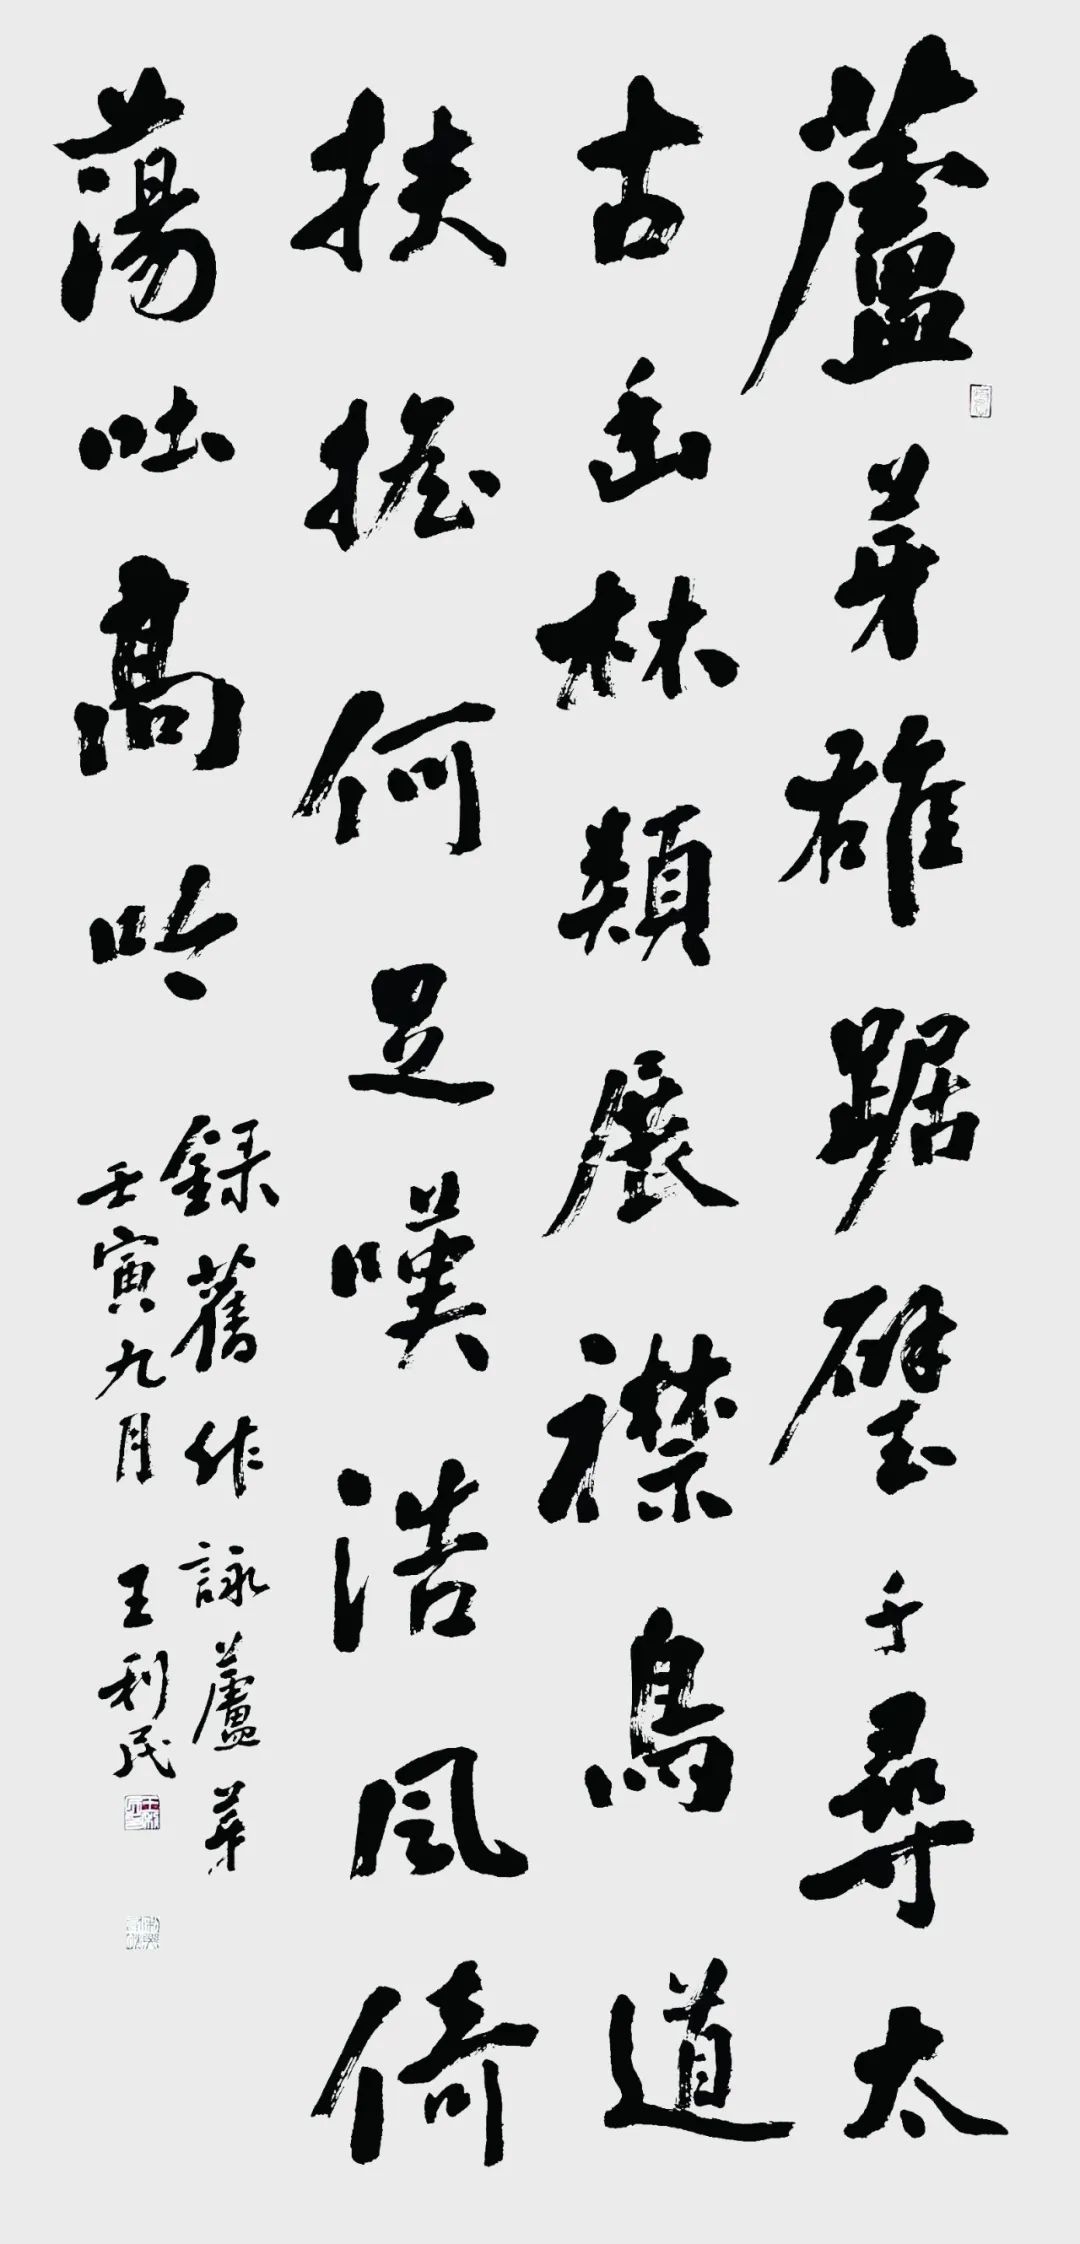 蘆芽雄踞壁千尋太
古岳林類展襟鳥道
扶搖何足嘆浩風倚
蕩吐高吟
錄舊作詠蘆芽
壬寅九月 王利民